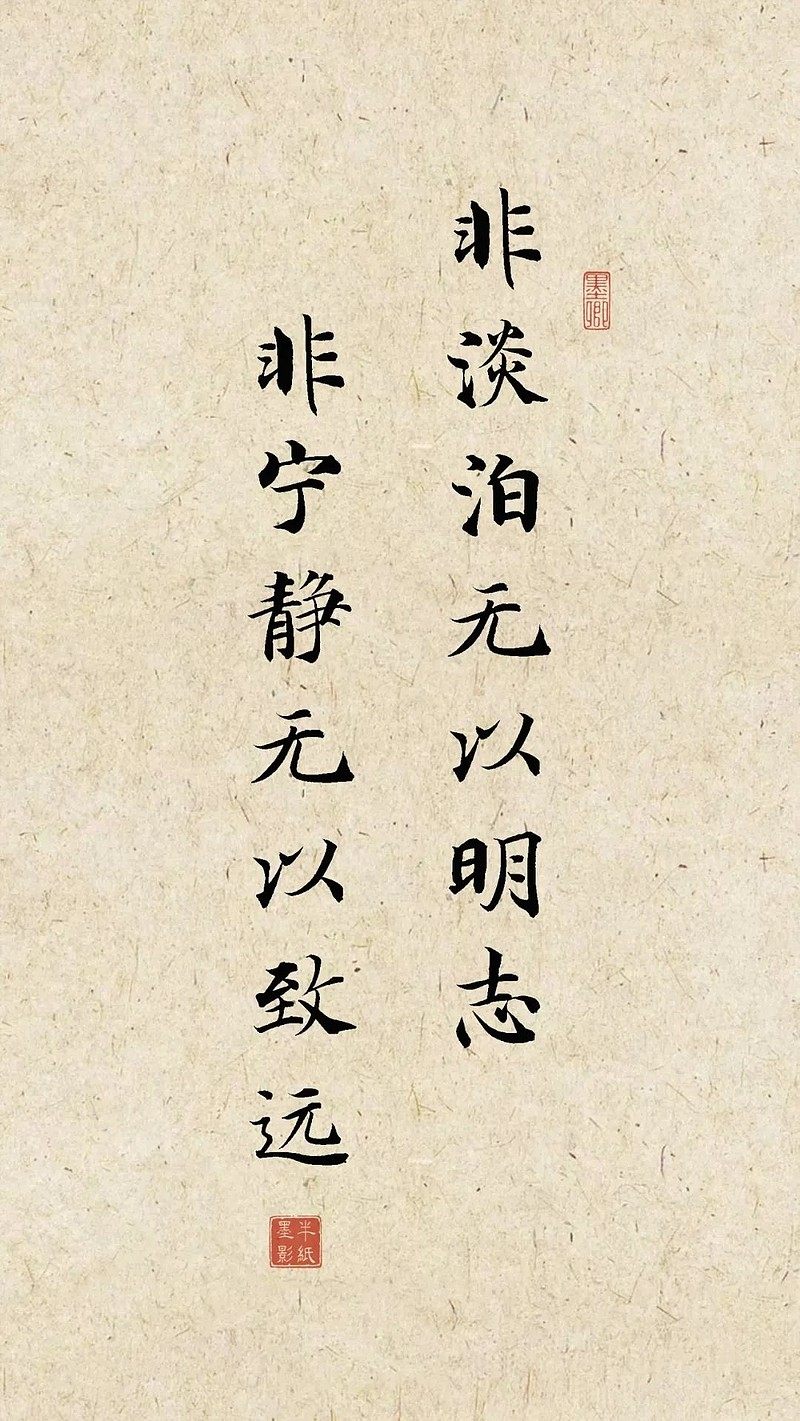 非淡泊无以明志
非宁静无以致远
墨卿
半紙墨影